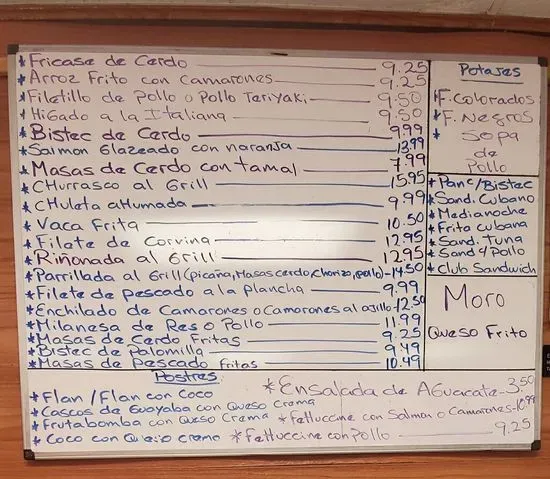 *Fricase de Cerdo 9.25
*Arroz Frito con Camarones 9.25
*Filetillo de Pollo o Pollo Teriyaki 9.50
*Higado a la Italiana 9.50
*Bistec de Cerdo 9.99
*Salmon Glazeado con naranja 13.99
*Masas de Cerdo con tamal 7.99
*CHurrasco al Grill 15.95
*CHuleta aHumada 9.99
*Vaca Frita 10.50
*Filete de Corvina 12.95
*Riñonada al Grill 12.95
*Parrillada al Grill (picaña, Masas cerdo, Chorizo, pollo) 14.50
*Filete de pescado a la plancha 9.99
*Enchilado de Camarones o Camarones al ajillo 12.50
*Milanesa de Res o Pollo 11.99
*Masas de Cerdo Fritas 9.25
*Bistec de Palomilla 9.49
*Masas de Pescado fritas 10.49
Potajes
*F. Colorados
*F. Negros
* Sopa
de
Pollo
*Pan c/Bistec
*Sand. Cubano
*Medianoche
*Frita cubana
*Sand. Tuna
*Sand. Pollo
*Club Sandwich
Moro
Queso Frito
Postres
*Flan/Flan con Coco
*Cascos de Guayaba con Queso Crema
*Frutabomba con Queso Crema
*Coco con Queso crema
*Ensalada de Aguacate 3.50
*fettuccine con Salmon o Camarones 10.99
*fettuccine con Pollo 9.25